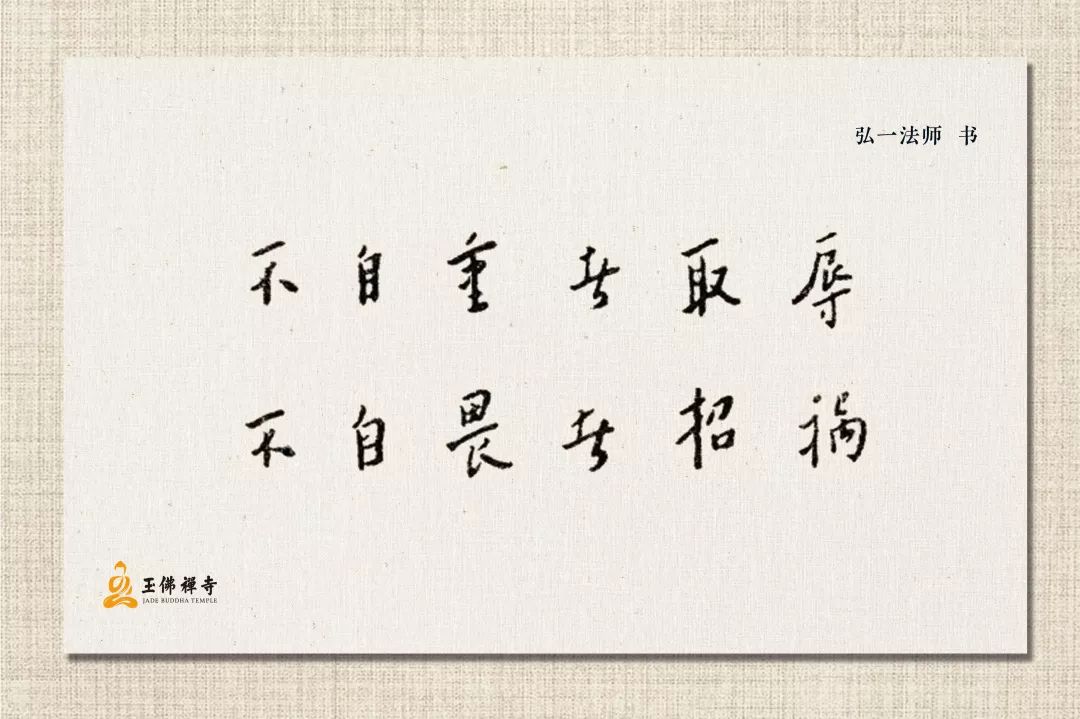 弘一法师 书
不自重者取辱
不自畏者招祸
玉佛禅寺
JADE BUDDHA TEMPLE